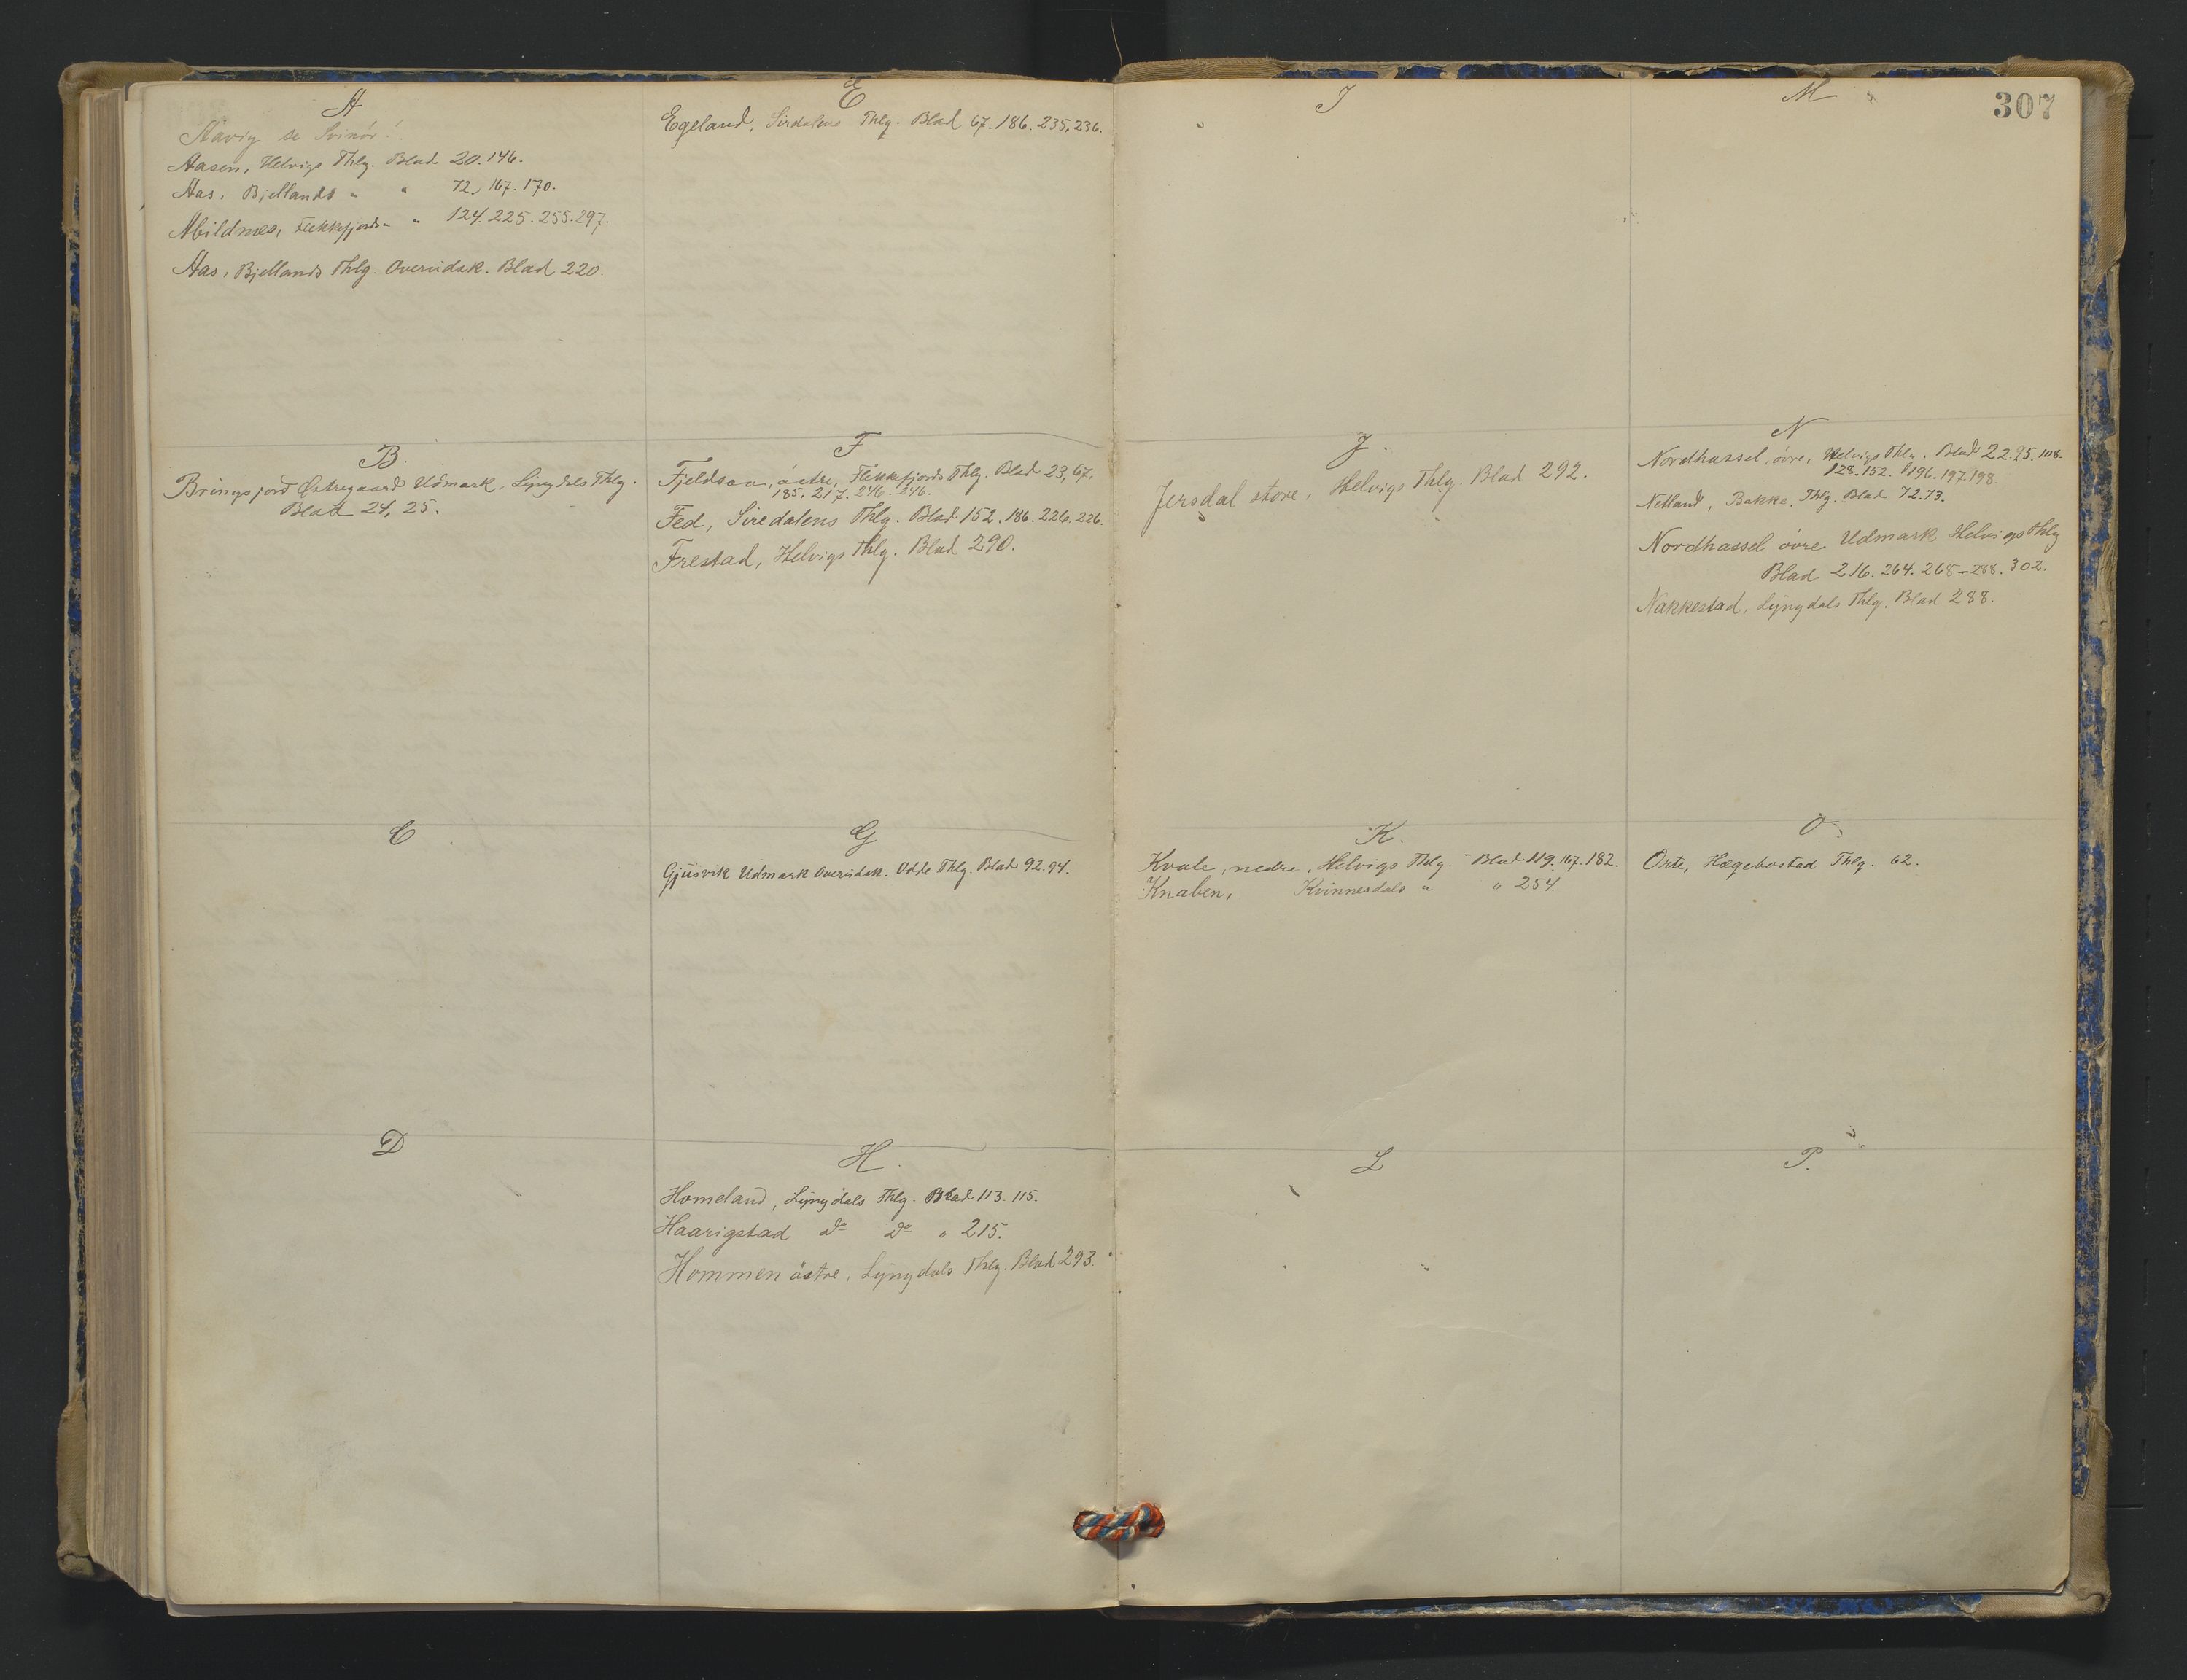 A
Aavig se Svinör!
Aasen, Helvigs Thlg. Blad 20. 146.
Aas, Bjellands " " 72, 167. 170.
Abildnæs, Flekkefjords " " 124. 225. 255. 297.
Aas, Bjellands Thlg. Overudsk. Blad 220.
B.
Bringsjord Østregaard Udmark, Lyngdals Thlg.
Blad 24, 25.
C
D
E
Egeland, Sirdalens Thlg. Blad 67. 186. 235, 236.
F
Fjeldsaa, östre, Flekkefjords Thlg. Blad 23, 67,
185, 217. 246. 246.
Fed, Siredalens Thlg. Blad 152. 186. 226. 226.
Frestad, Helvigs Thlg. Blad 290.
G
Gjusvik Udmark Overudsk. Odde Thlg. Blad 92. 94.
H.
Homeland, Lyngdals Thlg. Blad 113. 115.
Haarigstad do do " 215.
Hommen östre, Lyngdals Thlg. Blad 293.
307
I
J.
Jersdal store, Helvigs Thlg. Blad 292.
K.
Kvale, nedre, Helvigs Thlg. Blad 119. 167. 182.
Knaben, Kvinnesdals " " 254.
L
M
N
Nordhassel, övre, Helvigs Thlg. Blad 22. 95. 108.
128. 152. 196. 197. 198.
Netland, Bakke Thlg. Blad 72. 73.
Nordhassel övre Udmark Helvigs Thlg
Blad 216. 264. 268 - 288. 302.
Nakkestad, Lyngdals Thlg. Blad 288.
O
Orte, Hægebostad Thlg. 62.
P.